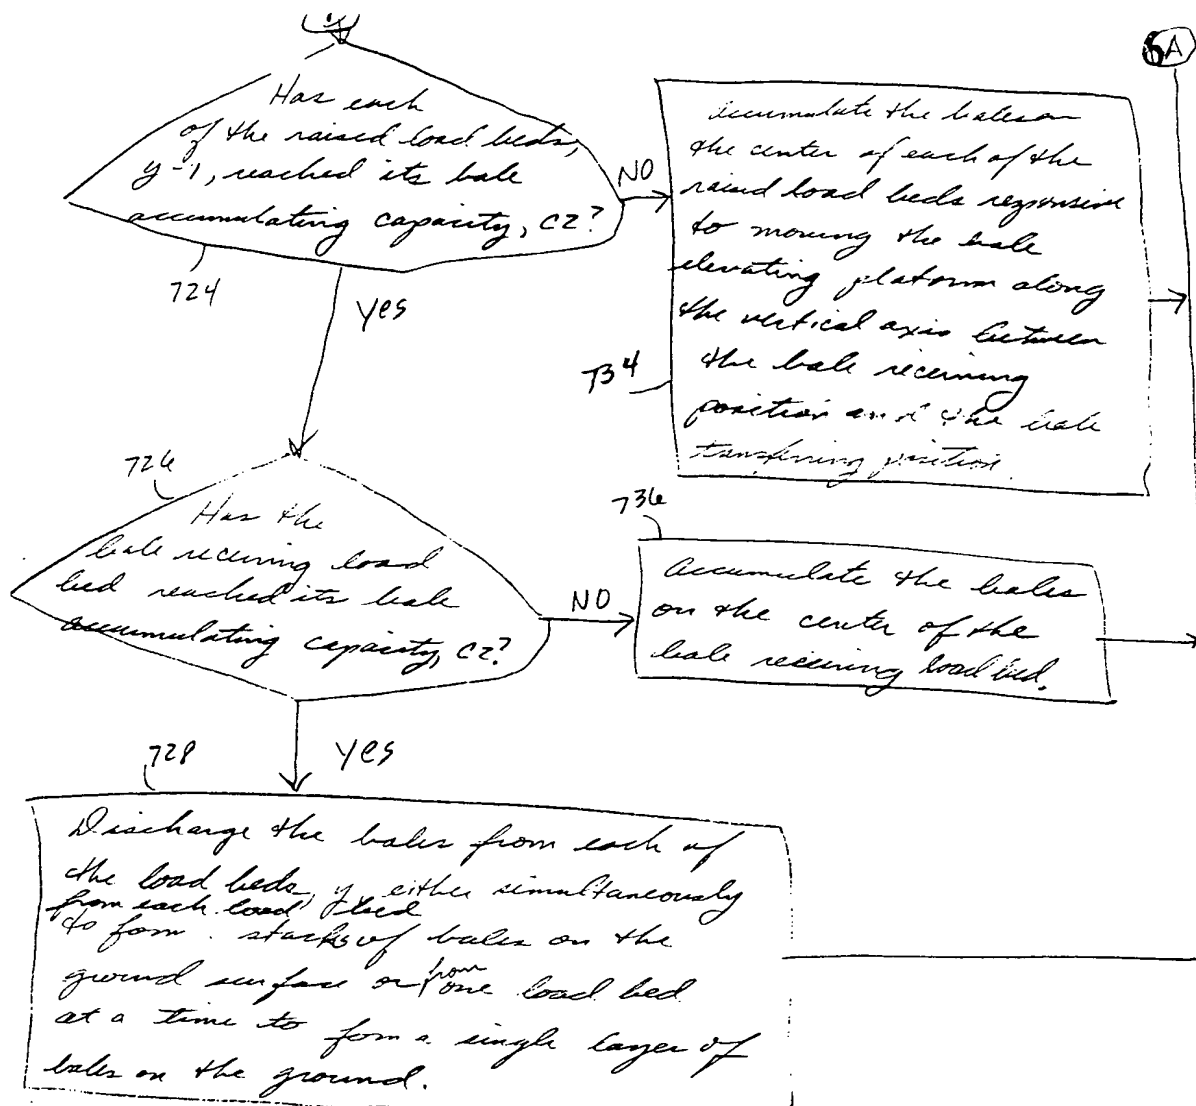 6A
Has each
of the raised load beds,
y-1, reached its bale
accumulating capacity, C2?
NO
724
yes
Accumulate the bales on
the center of each of the
raised load beds responsive
to moving the bale
elevating platform along
the vertical axis between
the bale receiving
position and the bale
transferring position.
734
726
Has the
bale receiving load
bed reached its bale
accumulating capacity, C2?
NO
yes
736
Accumulate the bales
on the center of the
bale receiving load bed.
728
Discharge the bales from each of
the load beds, y, either simultaneously
from each load bed
to form stacks of bales on the
ground surface or from one load bed
at a time to form a single layer of
bales on the ground.